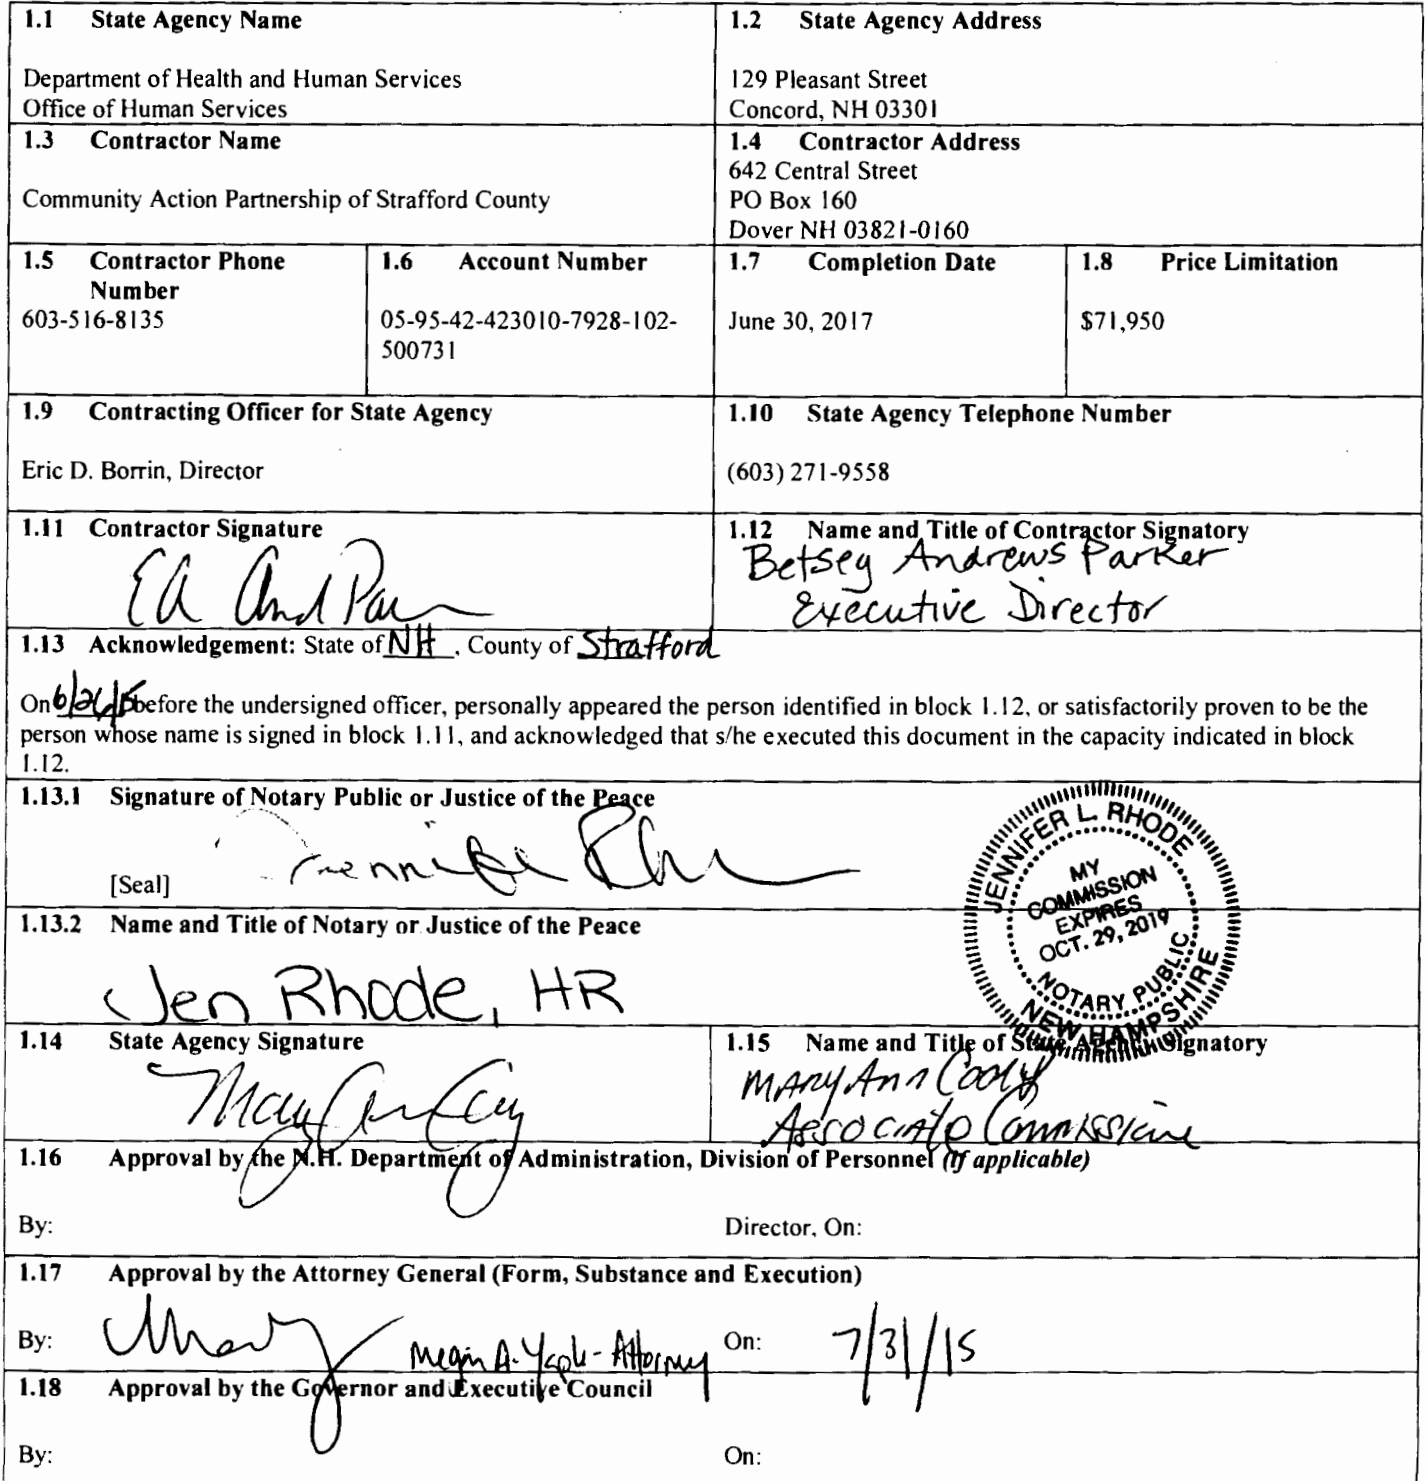 1.1 State Agency Name
Department of Health and Human Services
Office of Human Services
1.2 State Agency Address
129 Pleasant Street
Concord, NH 03301
1.3 Contractor Name
Community Action Partnership of Strafford County
1.4 Contractor Address
642 Central Street
PO Box 160
Dover NH 03821-0160
1.5 Contractor Phone
Number
603-516-8135
1.6 Account Number
05-95-42-423010-7928-102-
500731
1.7 Completion Date
June 30, 2017
1.8 Price Limitation
$71,950
1.9 Contracting Officer for State Agency
Eric D. Borrin, Director
1.10 State Agency Telephone Number
(603) 271-9558
1.11 Contractor Signature
1.12 Name and Title of Contractor Signatory
Betsey Andrews Parker
Executive Director
1.13 Acknowledgement: State of NH, County of Strafford
On 6/26/15 before the undersigned officer, personally appeared the person identified in block 1.12, or satisfactorily proven to be the
person whose name is signed in block 1.11, and acknowledged that s/he executed this document in the capacity indicated in block
1.12.
1.13.1 Signature of Notary Public or Justice of the Peace
[Seal]
JENNIFER L. RHODE
MY
COMMISSION
EXPIRES
OCT. 29, 2019
NOTARY PUBLIC
NEW HAMPSHIRE
1.13.2 Name and Title of Notary or Justice of the Peace
Jen Rhode, HR
1.14 State Agency Signature
1.15 Name and Title of State Agency Signatory
Mary Ann Cooney
Associate Commissioner
1.16 Approval by the N.H. Department of Administration, Division of Personnel (if applicable)
By: Director, On:
1.17 Approval by the Attorney General (Form, Substance and Execution)
By: Megan A. - Attorney On: 7/31/15
1.18 Approval by the Governor and Executive Council
By: On: